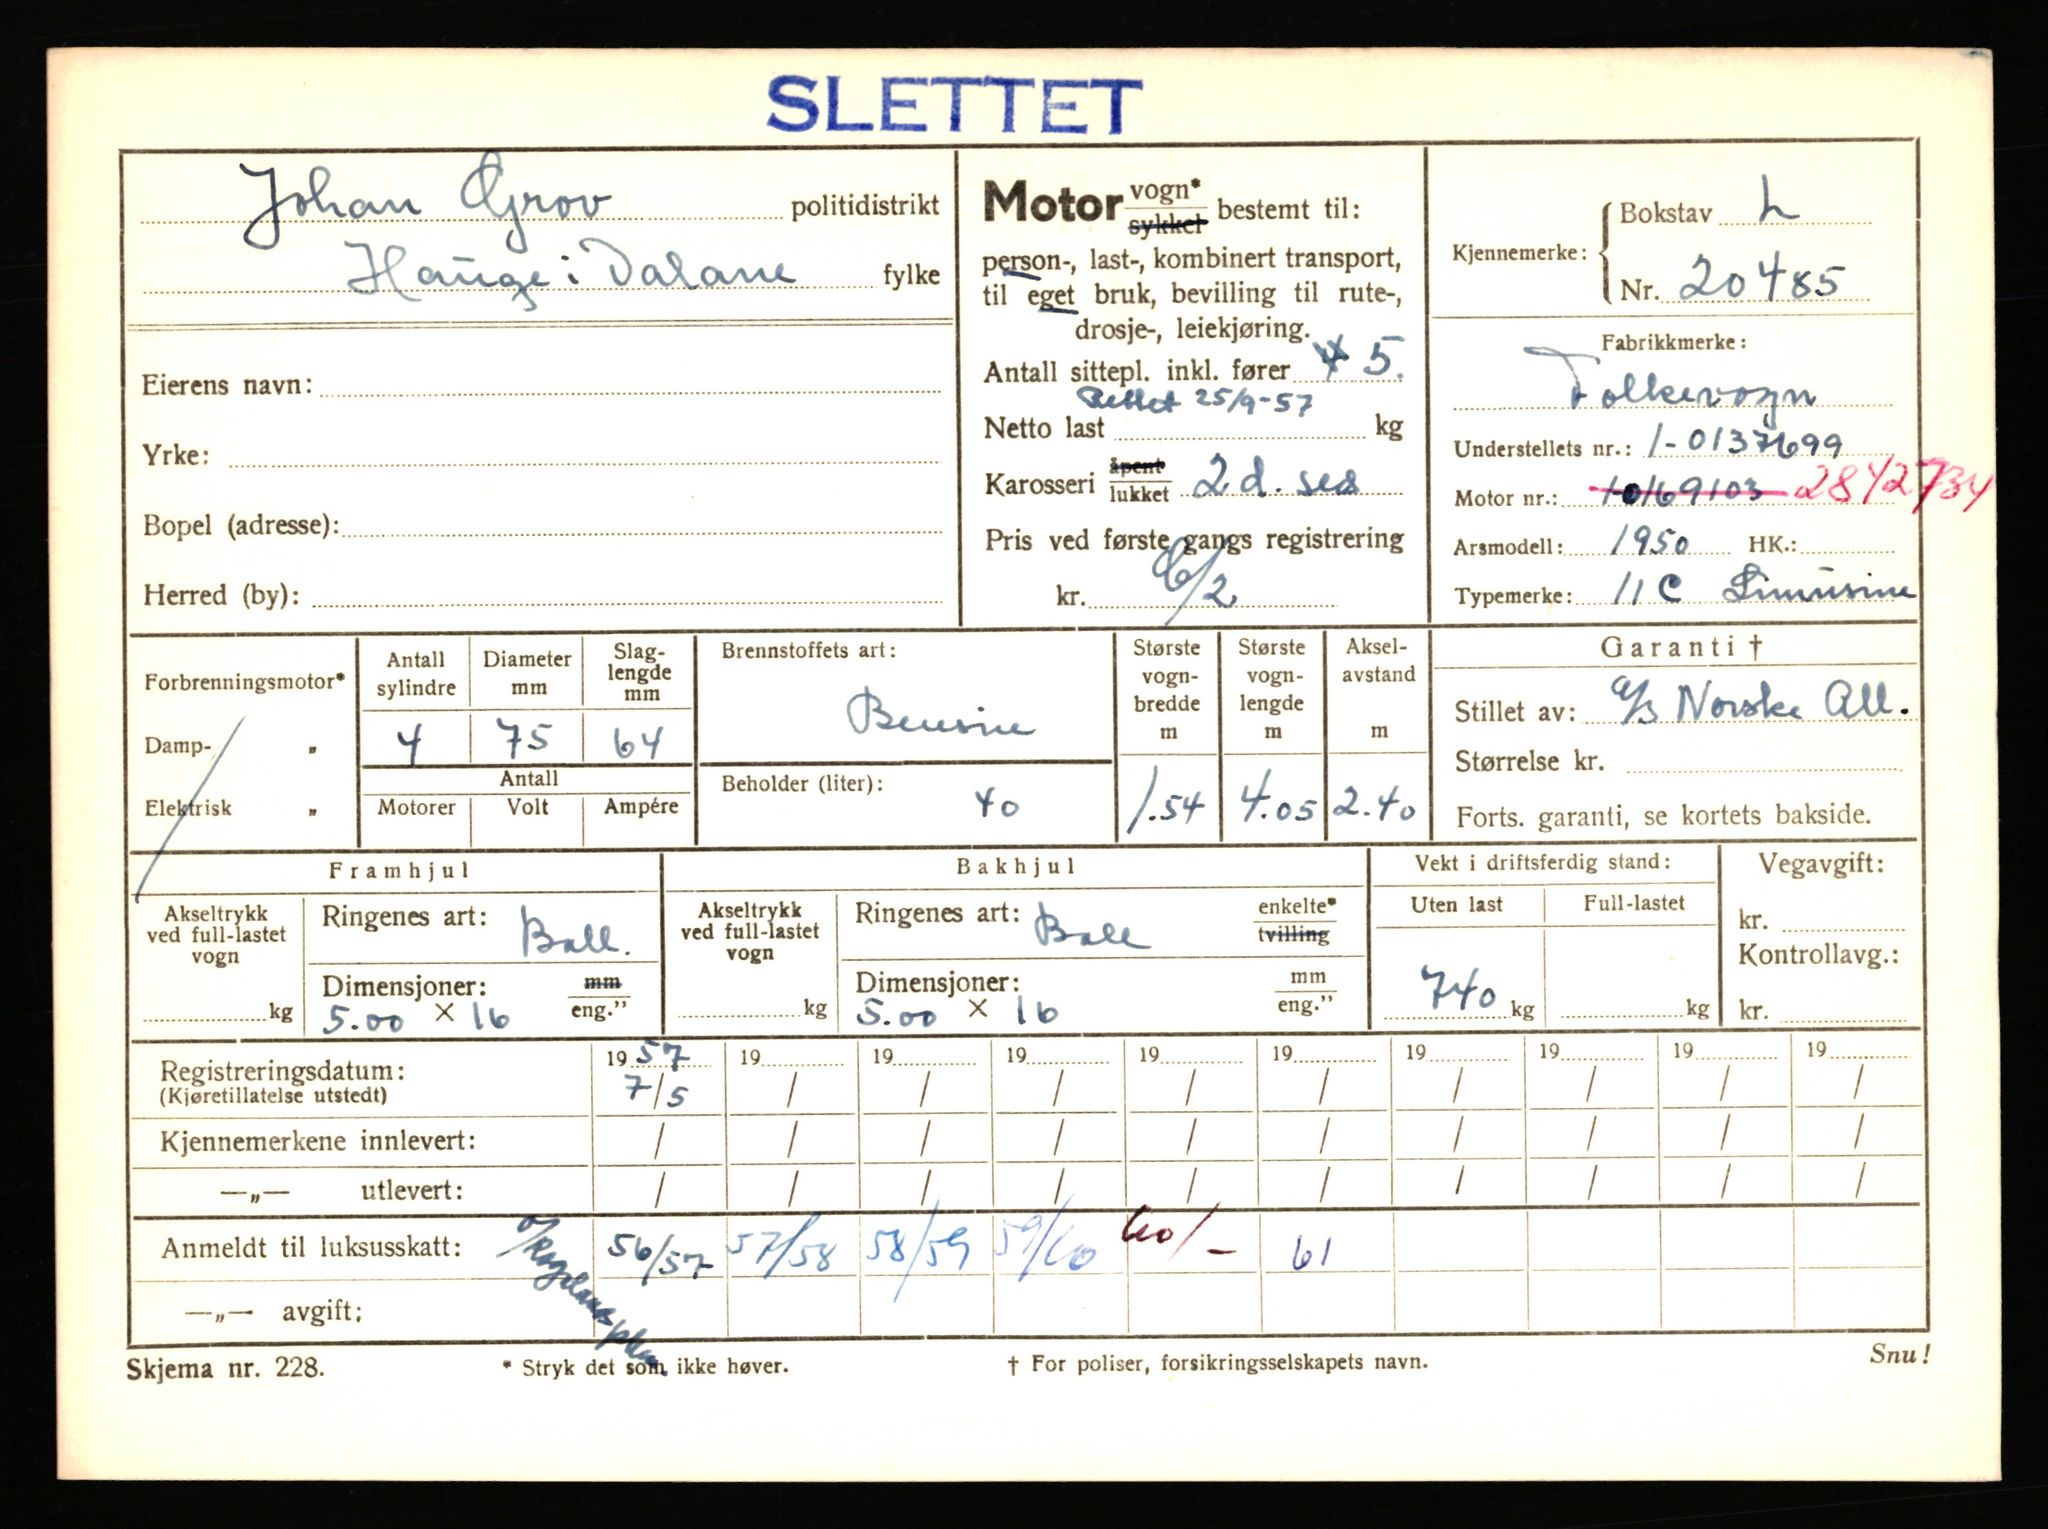 SLETTET
Johan Grov politidistrikt
Hauge i Dalane fylke
Eierens navn:
Yrke:
Bopel (adresse):
Herred (by):
Motor vogn* sykkel bestemt til:
person-, last-, kombinert transport,
til eget bruk, bevilling til rute-,
drosje-, leiekjøring.
Antall sittepl. inkl. fører 4 5.
Rettet 25/9-57
Netto last kg
Karosseri åpent lukket 2 d. sed
Pris ved første gangs registrering
kr.
Kjennemerke: Bokstav L
Nr. 20485
Fabrikkmerke:
Folkevogn
Understellets nr.: 1-0137699
Motor nr.: 1-0169103 2842734
Arsmodell: 1950 HK.:
Typemerke: 11 C Limusine
Forbrenningsmotor*
Damp- „
Elektrisk „
Antall sylindre 4
Diameter mm 75
Slaglengde mm 64
Antall
Motorer Volt Ampére
Brennstoffets art:
Bensin
Beholder (liter): 40
Største vognbredde m 1.54
Største vognlengde m 4.05
Akselavstand m 2.40
Garanti †
Stillet av: a/s Norske All.
Størrelse kr.
Forts. garanti, se kortets bakside.
Framhjul
Akseltrykk ved full-lastet vogn kg
Ringenes art: Ball.
Dimensjoner: mm eng.”
5.00 × 16
Bakhjul
Akseltrykk ved full-lastet vogn kg
Ringenes art: Ball enkelte* tvilling
Dimensjoner: mm eng.”
5.00 × 16
Vekt i driftsferdig stand:
Uten last Full-lastet
740 kg kg
Vegavgift:
kr.
Kontrollavg.:
kr.
Registreringsdatum: 19 57 19 19 19 19 19 19 19 19 19
(Kjøretillatelse utstedt) 7/5 / / / / / / / / /
Kjennemerkene innlevert: / / / / / / / / / /
—„— utlevert: / / / / / / / / / /
Anmeldt til luksusskatt: 56/57 57/58 58/59 59/60 60/- 61
—„— avgift:
Skjema nr. 228. * Stryk det som ikke høver. † For poliser, forsikringsselskapets navn. Snu!